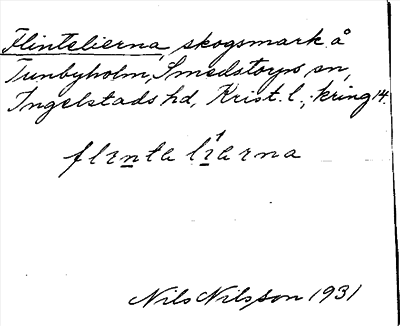 Flintelierna, skogsmark å
Tunbyholm, Smedstorps sn,
Ingelstads hd, Krist. l., kring 14.
flɪnta lɪ¹aɪna
Nils Nilsson 1931